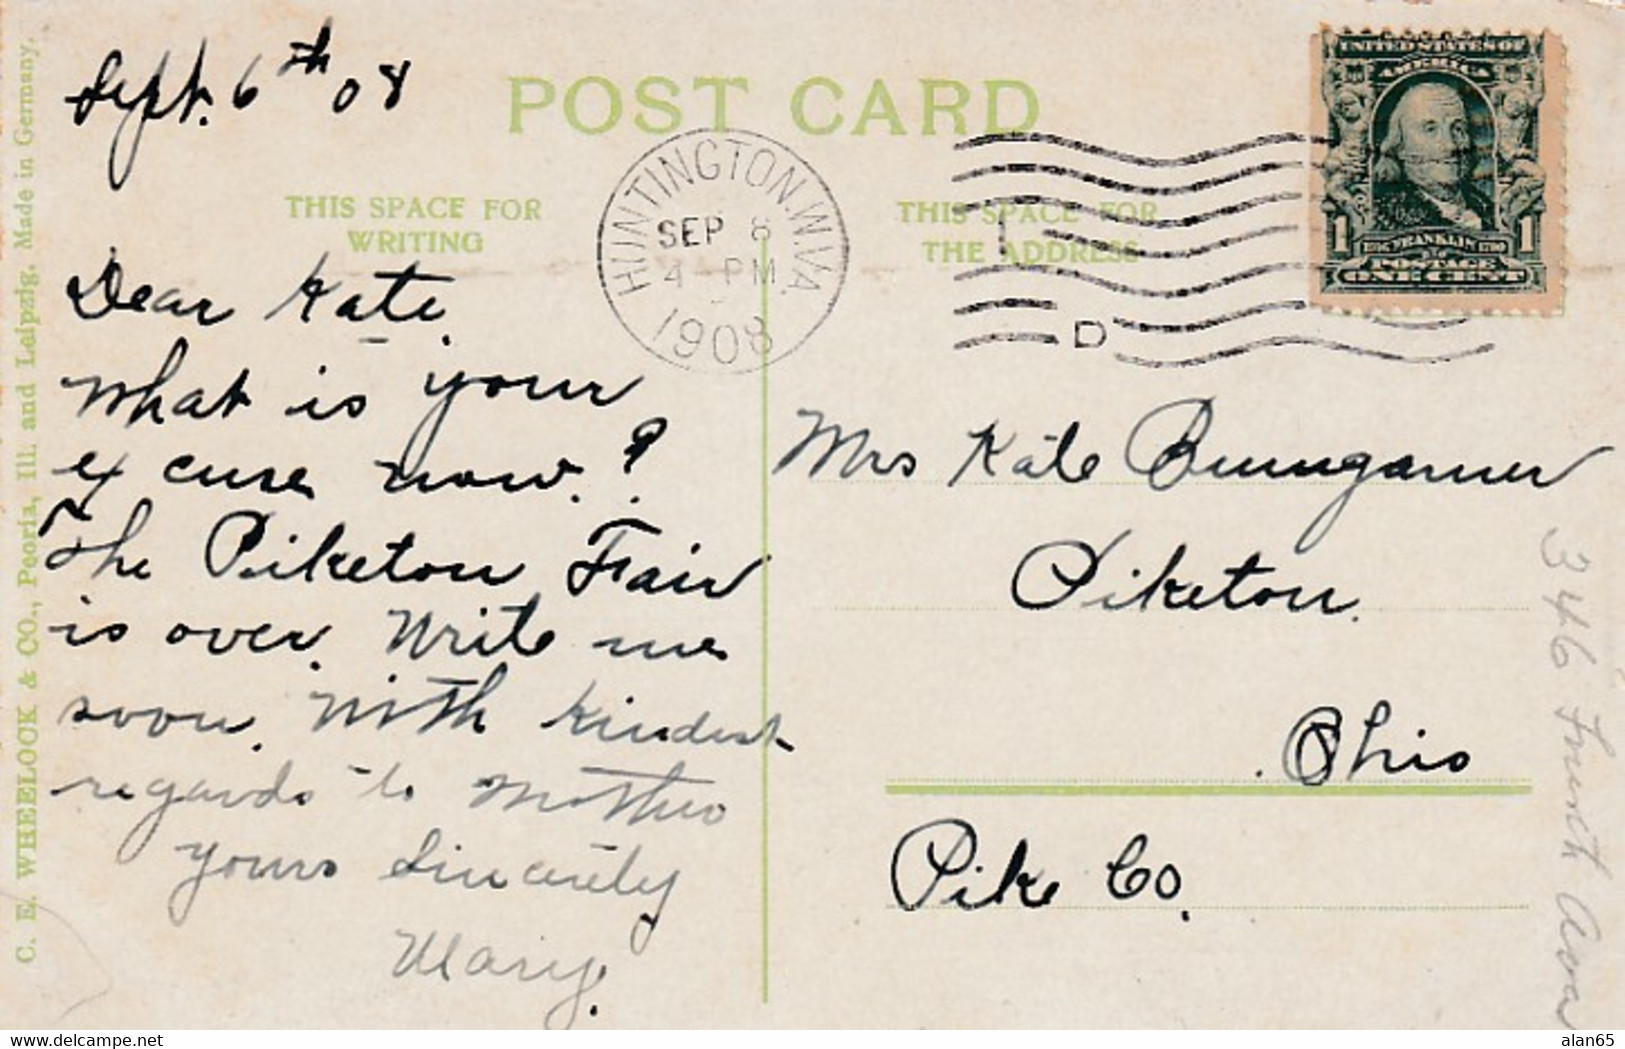 Sept. 6th 08
POST CARD
THIS SPACE FOR
WRITING
HUNTINGTON. W. VA.
SEP 8
4 - PM
1908
THIS SPACE FOR
THE ADDRESS
D
UNITED STATES OF
AMERICA
1 FRANKLIN 1
POSTAGE
ONE CENT
Dear Kate.
What is your
excuse now.?
The Piketon Fair
is over. Write me
soon. With kindest
regards to Mother
yours Sincerely
Mary.
Mrs Kate Bumgarner
Piketon.
Ohio
Pike Co.
346 Ave
C. E. WHEELOCK & CO., Peoria, Ill. and Leipzig. Made in Germany.
alan65